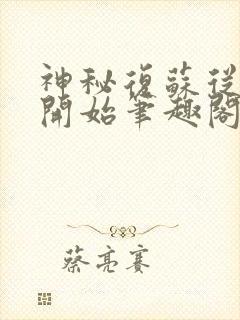 神秘復蘇從
開始筆趣閣
蔡亮賽